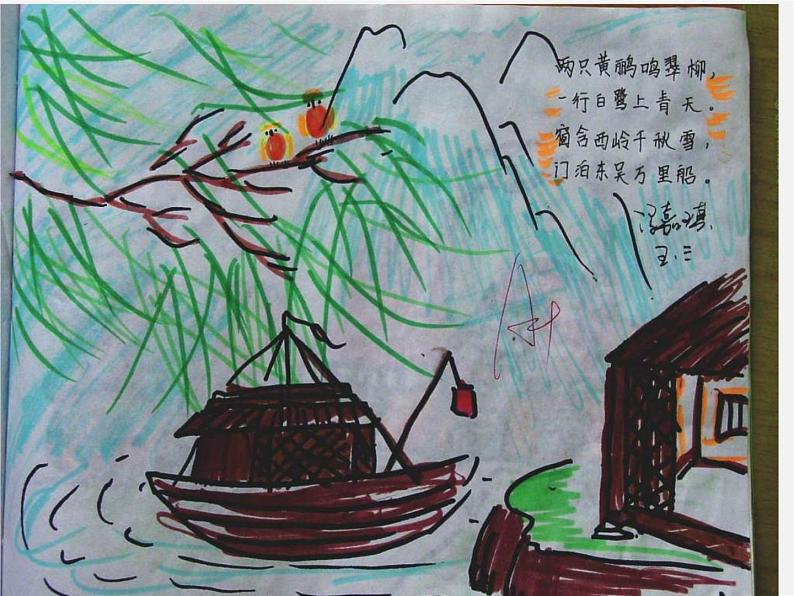 两只黄鹂鸣翠柳，
一行白鹭上青天。
窗含西岭千秋雪，
门泊东吴万里船。
五.三
A+